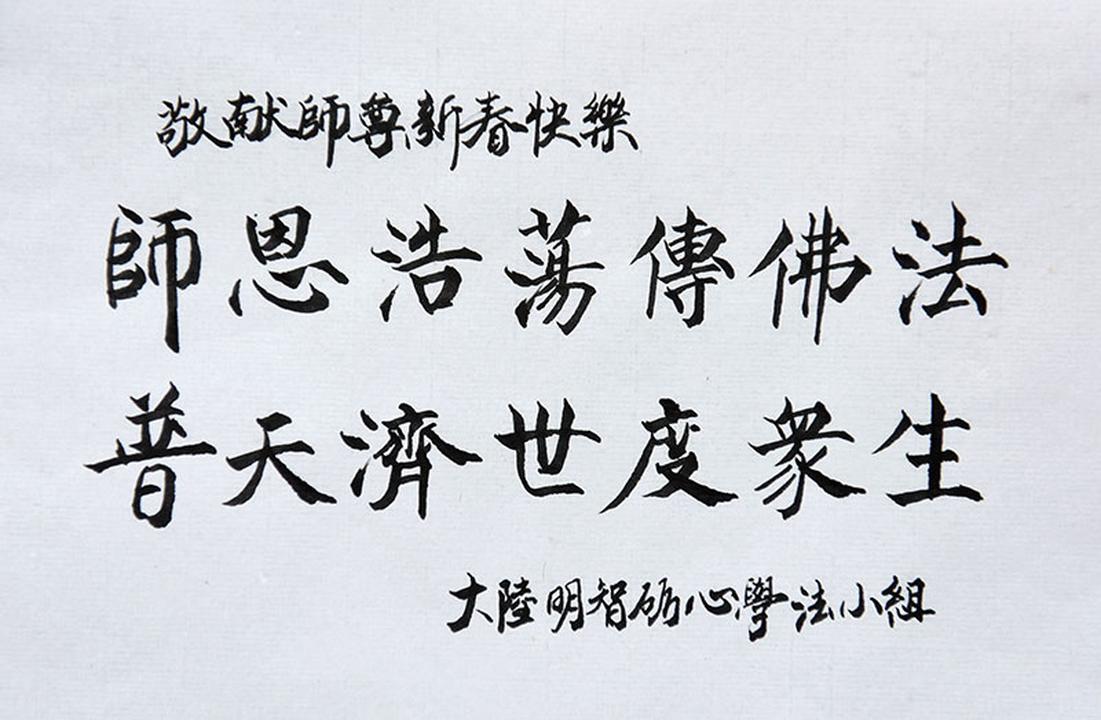 敬献師尊新春快樂
師恩浩蕩傳佛法
普天濟世度衆生
大陸明智砺心學法小組